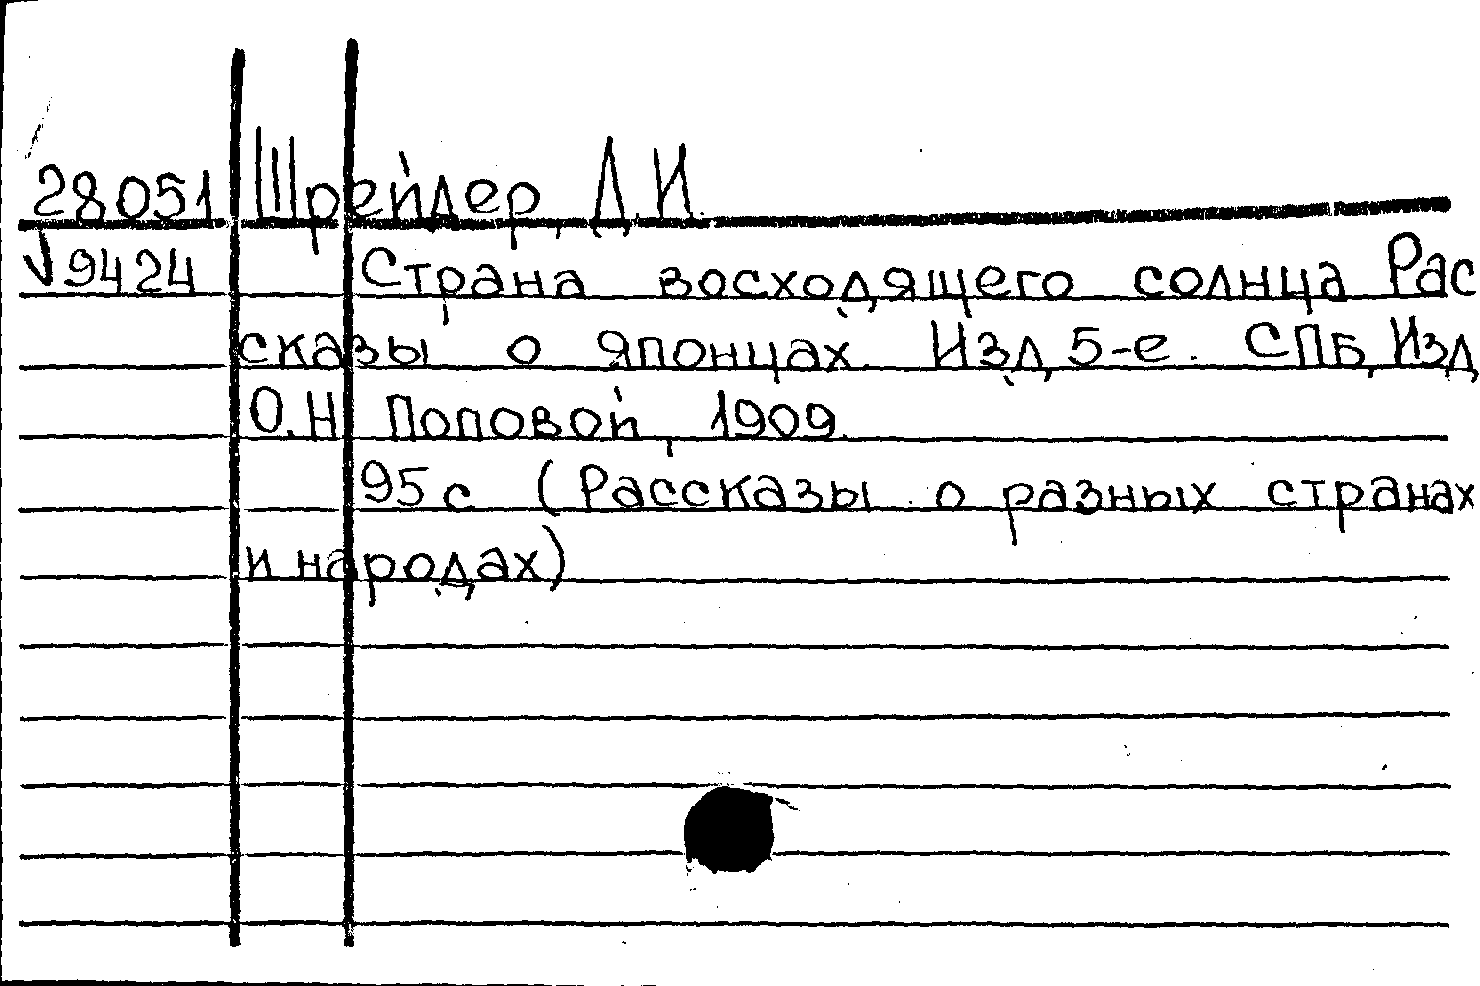 28051 Шрейдер, Д.И.
√9424 Страна восходящего солнца Рас
сказы о японцах. Изд. 5-е. СПБ, Изд
О.Н. Поповой, 1909.
95 с (Рассказы о разных странах
и народах)